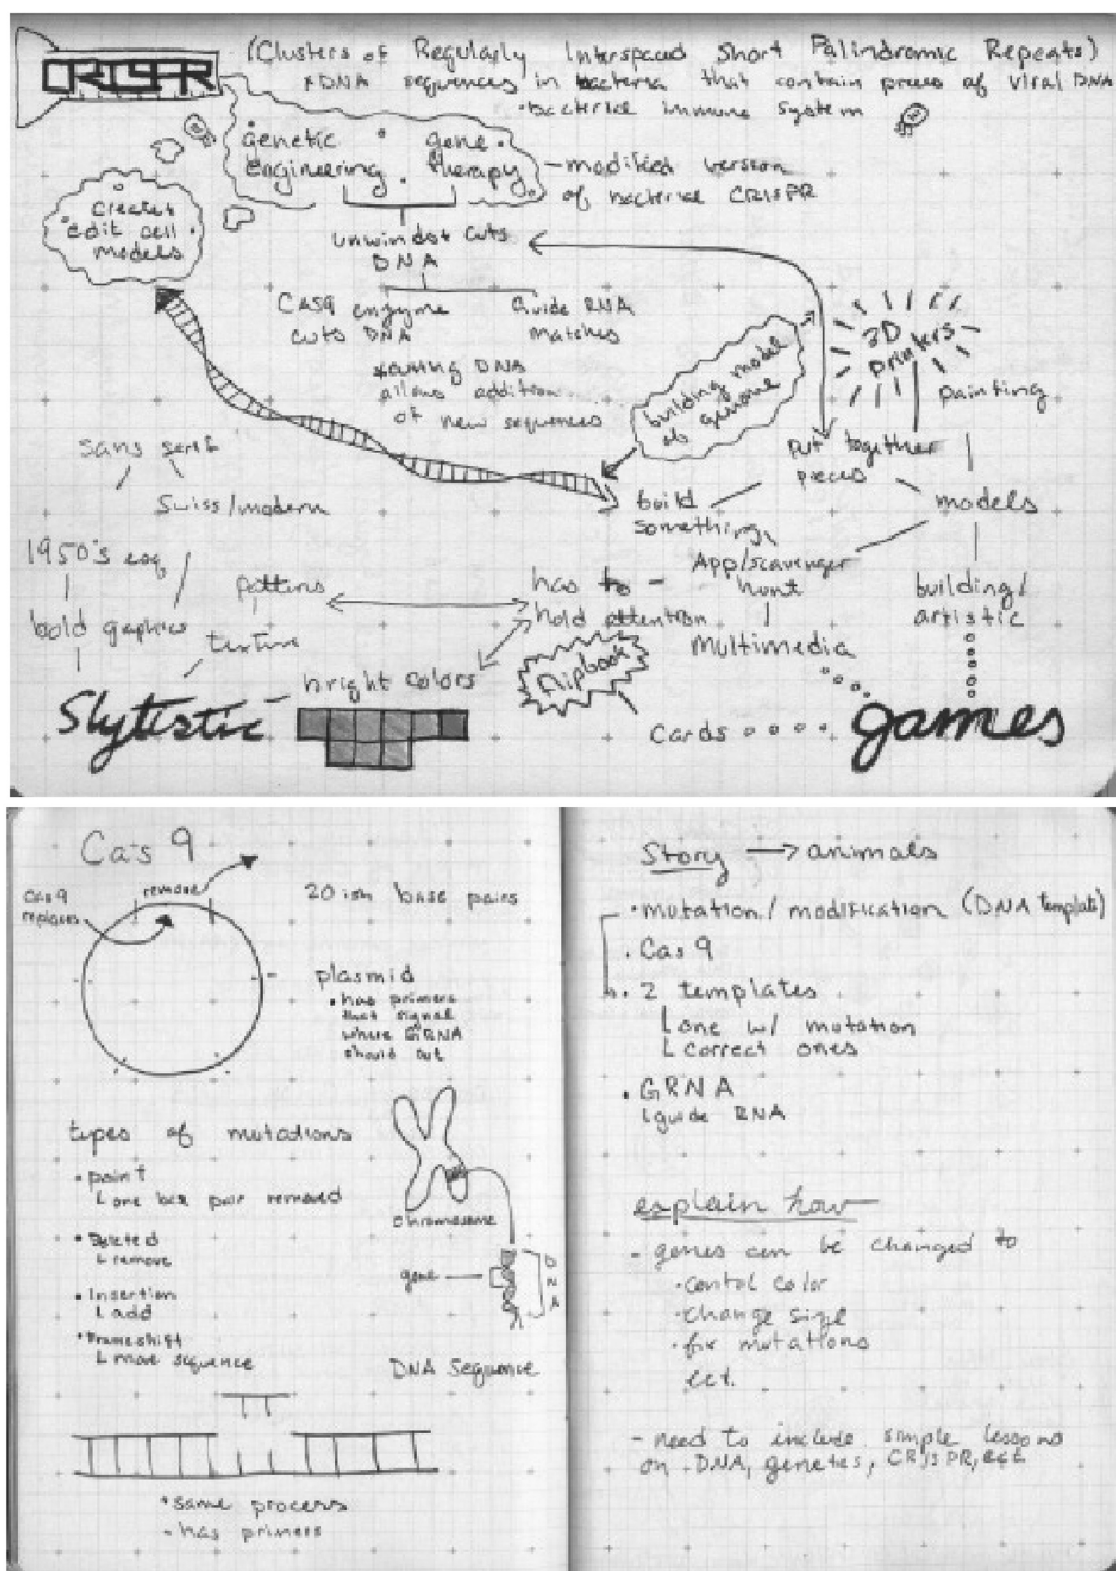 CRISPR
(Clusters of Regularly Interspaced Short Palindromic Repeats)
*DNA sequences in bacteria that contain pieces of viral DNA
• bacterial immune system
genetic
engineering
gene
therapy
- modified version
of bacterial CRISPR
create +
edit cell
models
unwinds + cuts
DNA
CAS9 enzyme
cuts DNA
Guide RNA
matches
*cutting DNA
allows addition
of new sequences
building model
of genome
3D
printers
painting
put together
pieces
build
something
models
sans serif
Swiss/modern
1950's esq
bold graphics
patterns
texture
has to -
hold attention
App/scavenger
hunt
building/
artistic
Multimedia
bright colors
flipbook
Stylistic
Cards
games
Cas 9
Cas 9
replaces
remove
20 ish base pairs
plasmid
• has primers
that signal
where GRNA
should cut
types of mutations
• point
one base pair removed
• Deleted
remove
• Insertion
add
• Frameshift
move sequence
chromosome
gene
DNA
DNA Sequence
• same process
- has primers
Story → animals
• mutation / modification (DNA template)
• Cas 9
• 2 templates
one w/ mutation
correct ones
• GRNA
guide RNA
explain how
- genes can be changed to
• contol color
• change size
• fix mutations
ect.
- need to include simple lessons
on DNA, genetes, CRISPR, ect